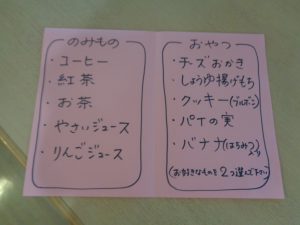 のみもの
・コーヒー
・紅茶
・お茶
・やさいジュース
・りんごジュース
おやつ
・チーズおかき
・しょうゆ揚げもち
・クッキー(ブルボン)
・パイの実
・バナナ(はちみつ入り)
(お好きなものを2つ選んで下さい)